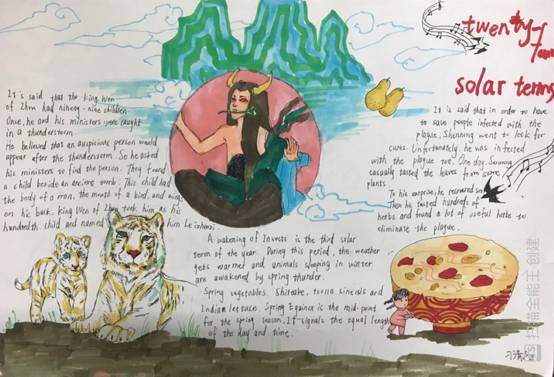 twenty-four
solar terms
It is said that the king Wen
of Zhou had ninety-nine children.
Once, he and his ministers were caught
in a thunderstorm.
He believed that an auspicious person would
appear after the thunderstorm. So he asked
his ministers to find the person. They found
a child beside an ancient tomb. This child had
the body of a man, the mouth of a bird, and wings
on his back. King Wen of Zhou took him as his
hundredth child and named him Lei
It is said that in order to have
to save people infected with the
plague, Shennong went to look for
cures. Unfortunately, he was infected
with the plague too. One day, Shennong
casually tasted the leaves from some
plants.
To his surprise, he recovered soon.
Then he tasted hundreds of
herbs and found a lot of useful herbs to
eliminate the plague.
Awakening of Insects is the third solar
term of the year. During this period, the weather
gets warmer and animals sleeping in winter
are awakened by spring thunder.
Spring vegetables, toona sinensis and
Indian lettuce. Spring Equinox is the mid-point
for the spring season. It signals the equal length
of the day and time.
扫描全能王 创建